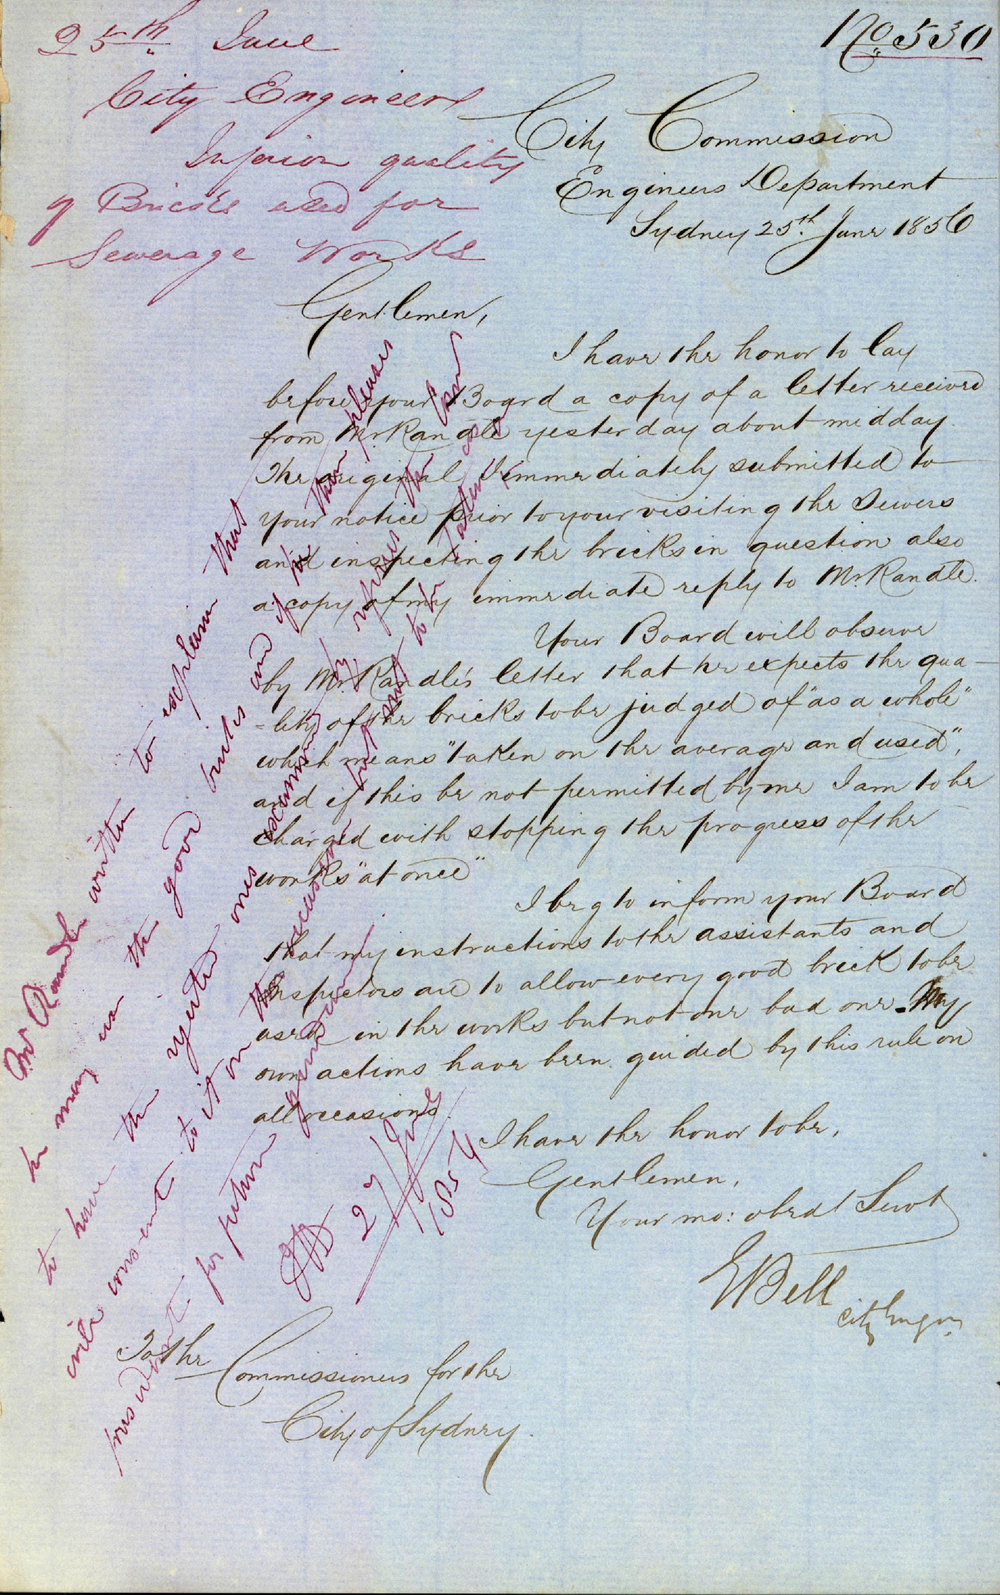 No. 530
25th June
City Engineer
Inferior quality
of Bricks used for
Sewerage Works
City Commission
Engineers Department
Sydney 25th. June 1856
Gentlemen,
I have the honor to lay
before your Board a copy of a letter received
from Mr Randle yesterday about midday.
The original I immediately submitted to
your notice prior to your visiting the Sewers
and inspecting the bricks in question also
a copy of my immediate reply to Mr Randle.
Your Board will observe
by Mr. Randle's letter that he expects the qua-
-lity of the bricks to be judged of "as a whole"
which means "taken on the average and used",
and if this be not permitted by me I am to be
charged with stopping the progress of the
works "at once"
I beg to inform your Board
that my instructions to the assistants and
inspectors are to allow every good brick to be
used in the works but not one bad one. My
own actions have been guided by this rule on
all occasions.
I have the honor to be,
Gentlemen,
Your mo: obedt Servt
E Bell
City Engr.
To the
Commissioners for the
City of Sydney.
Mr Randle written to explain that
he may use the good bricks and if he then pleases
to have the rejected ones examined by referees the Com
will consent to it on this occasion but not to be taken as
precedent for future guidance
27 June
1856